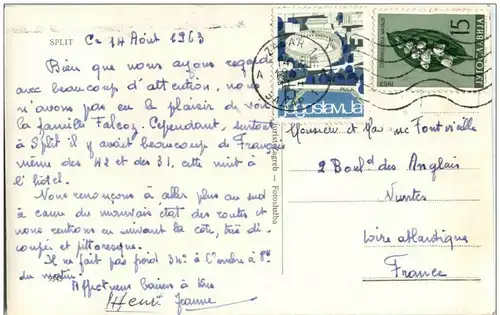 SPLIT
Ce 14 Août 1963
Bien que nous ayons regardé
avec beaucoup d'attention, nous
n'avons pas eu le plaisir de voir
la famille Falcoz. Cependant, surtout
à Split il y avait beaucoup de Français
même des 42 et des 31, cette nuit à
l'hôtel.
Nous renonçons à aller plus au sud
à cause du mauvais état des routes et
nous rentrons en suivant la côte, très dé-
coupée et pittoresque.
Il ne fait pas froid 34° à l'ombre à 8h
du matin.
Affectueux baisers à tous
Henri Jeanne
ZADAR 1
PULA
15
Jugoslavija
15
ЈУГОСЛАВИЈА
CONVALLARIA MAJALIS
1963
Zagreb - Fotoslužba
Monsieur et Madame Fontvieille
2 Bould des Anglais
Nantes
Loire atlantique
France